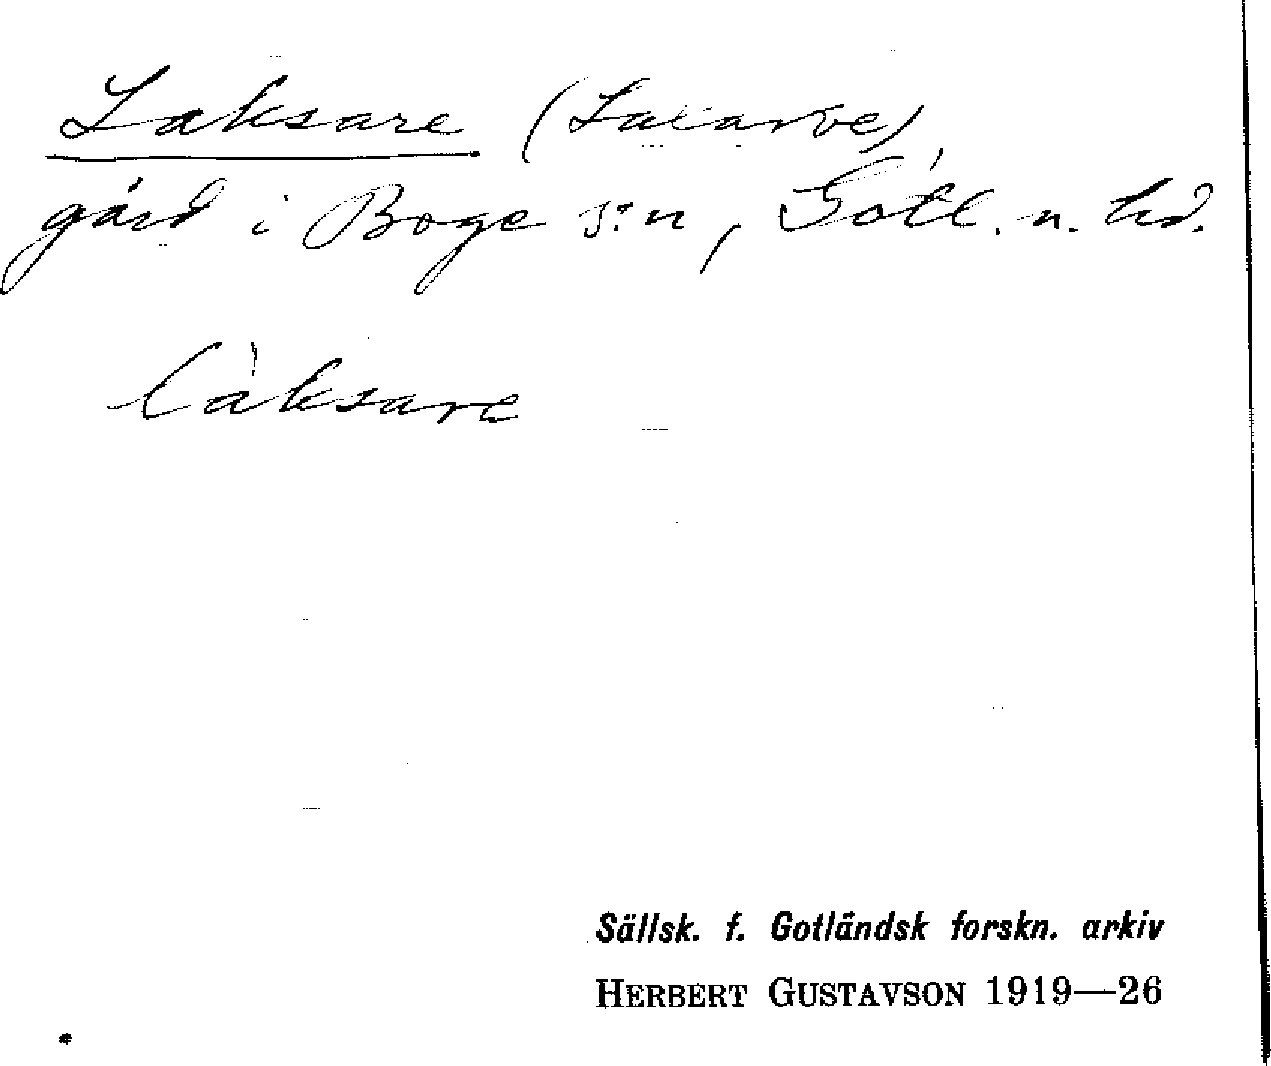 Laksare (Laxarve),
gård i Boge s:n, Gotl. n. hd.
làksare
Sällsk. f. Gotländsk forskn. arkiv
HERBERT GUSTAVSON 1919—26